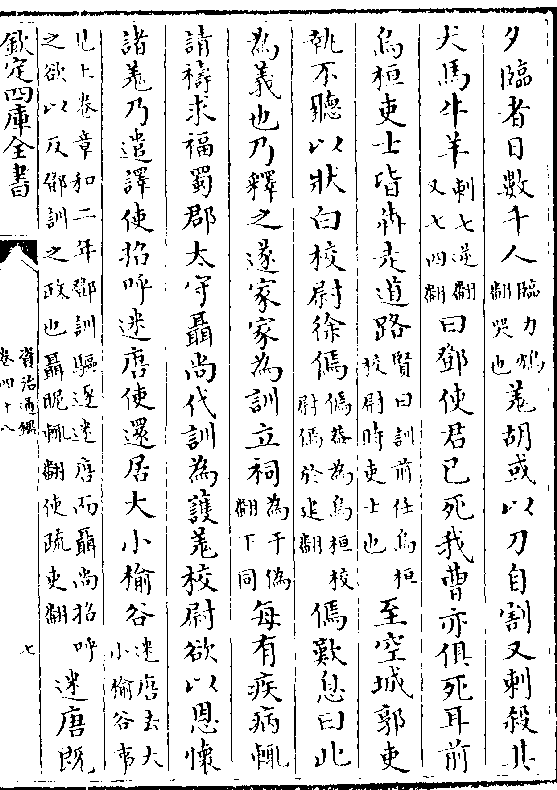 夕臨者日數千人臨力鴆翻哭也羌胡或以刀自割又刺殺其
犬馬牛羊刺七逆翻又七四翻曰鄧使君已死我曹亦俱死耳前
烏桓吏士皆犇走道路賢曰訓前任烏桓校尉時吏士也至空城郭吏
執不聽以狀白校尉徐傿傿蓋為烏桓校尉傿於建翻傿歎息曰此
為義也乃釋之遂家家為訓立祠為于偽翻下同每有疾病輒
請禱求福蜀郡太守聶尚代訓為護羌校尉欲以恩懷
諸羌乃遣譯使招呼迷唐使還居大小榆谷迷唐去大小榆谷事
見上卷章和二年鄧訓驅逐迷唐而聶尚招呼之欲以反鄧訓之政也聶昵輒翻使疏吏翻迷唐既
欽定四庫全書
資治通鑑
卷四十八
七